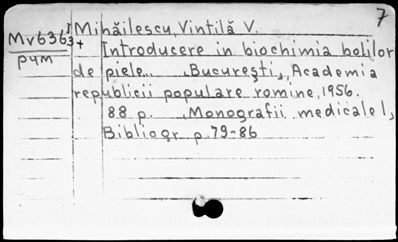 7
Mv6363+ Mihăilescu, Vintilă V.
рум Introducere in biochimia bolilor
de piele... București, Academia
republicii populare romine, 1956.
88 p. Monografii medicale],
Bibliogr p.79-86